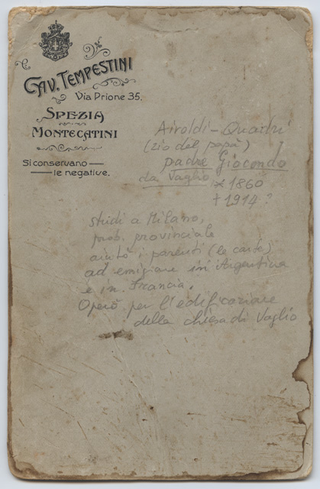 CAV. TEMPESTINI
Via Prione 35.
SPEZIA
MONTECATINI
Si conservano
le negative.
Airoldi - Quadri
(zio del papà)
padre Giocondo
da Vaglio * 1860
† 1914?
studi a Milano,
provinciale
aiutò i parenti (le carte)
ad emigrare in Argentina
e in Francia.
Operò per l'edificazione
della chiesa di Vaglio